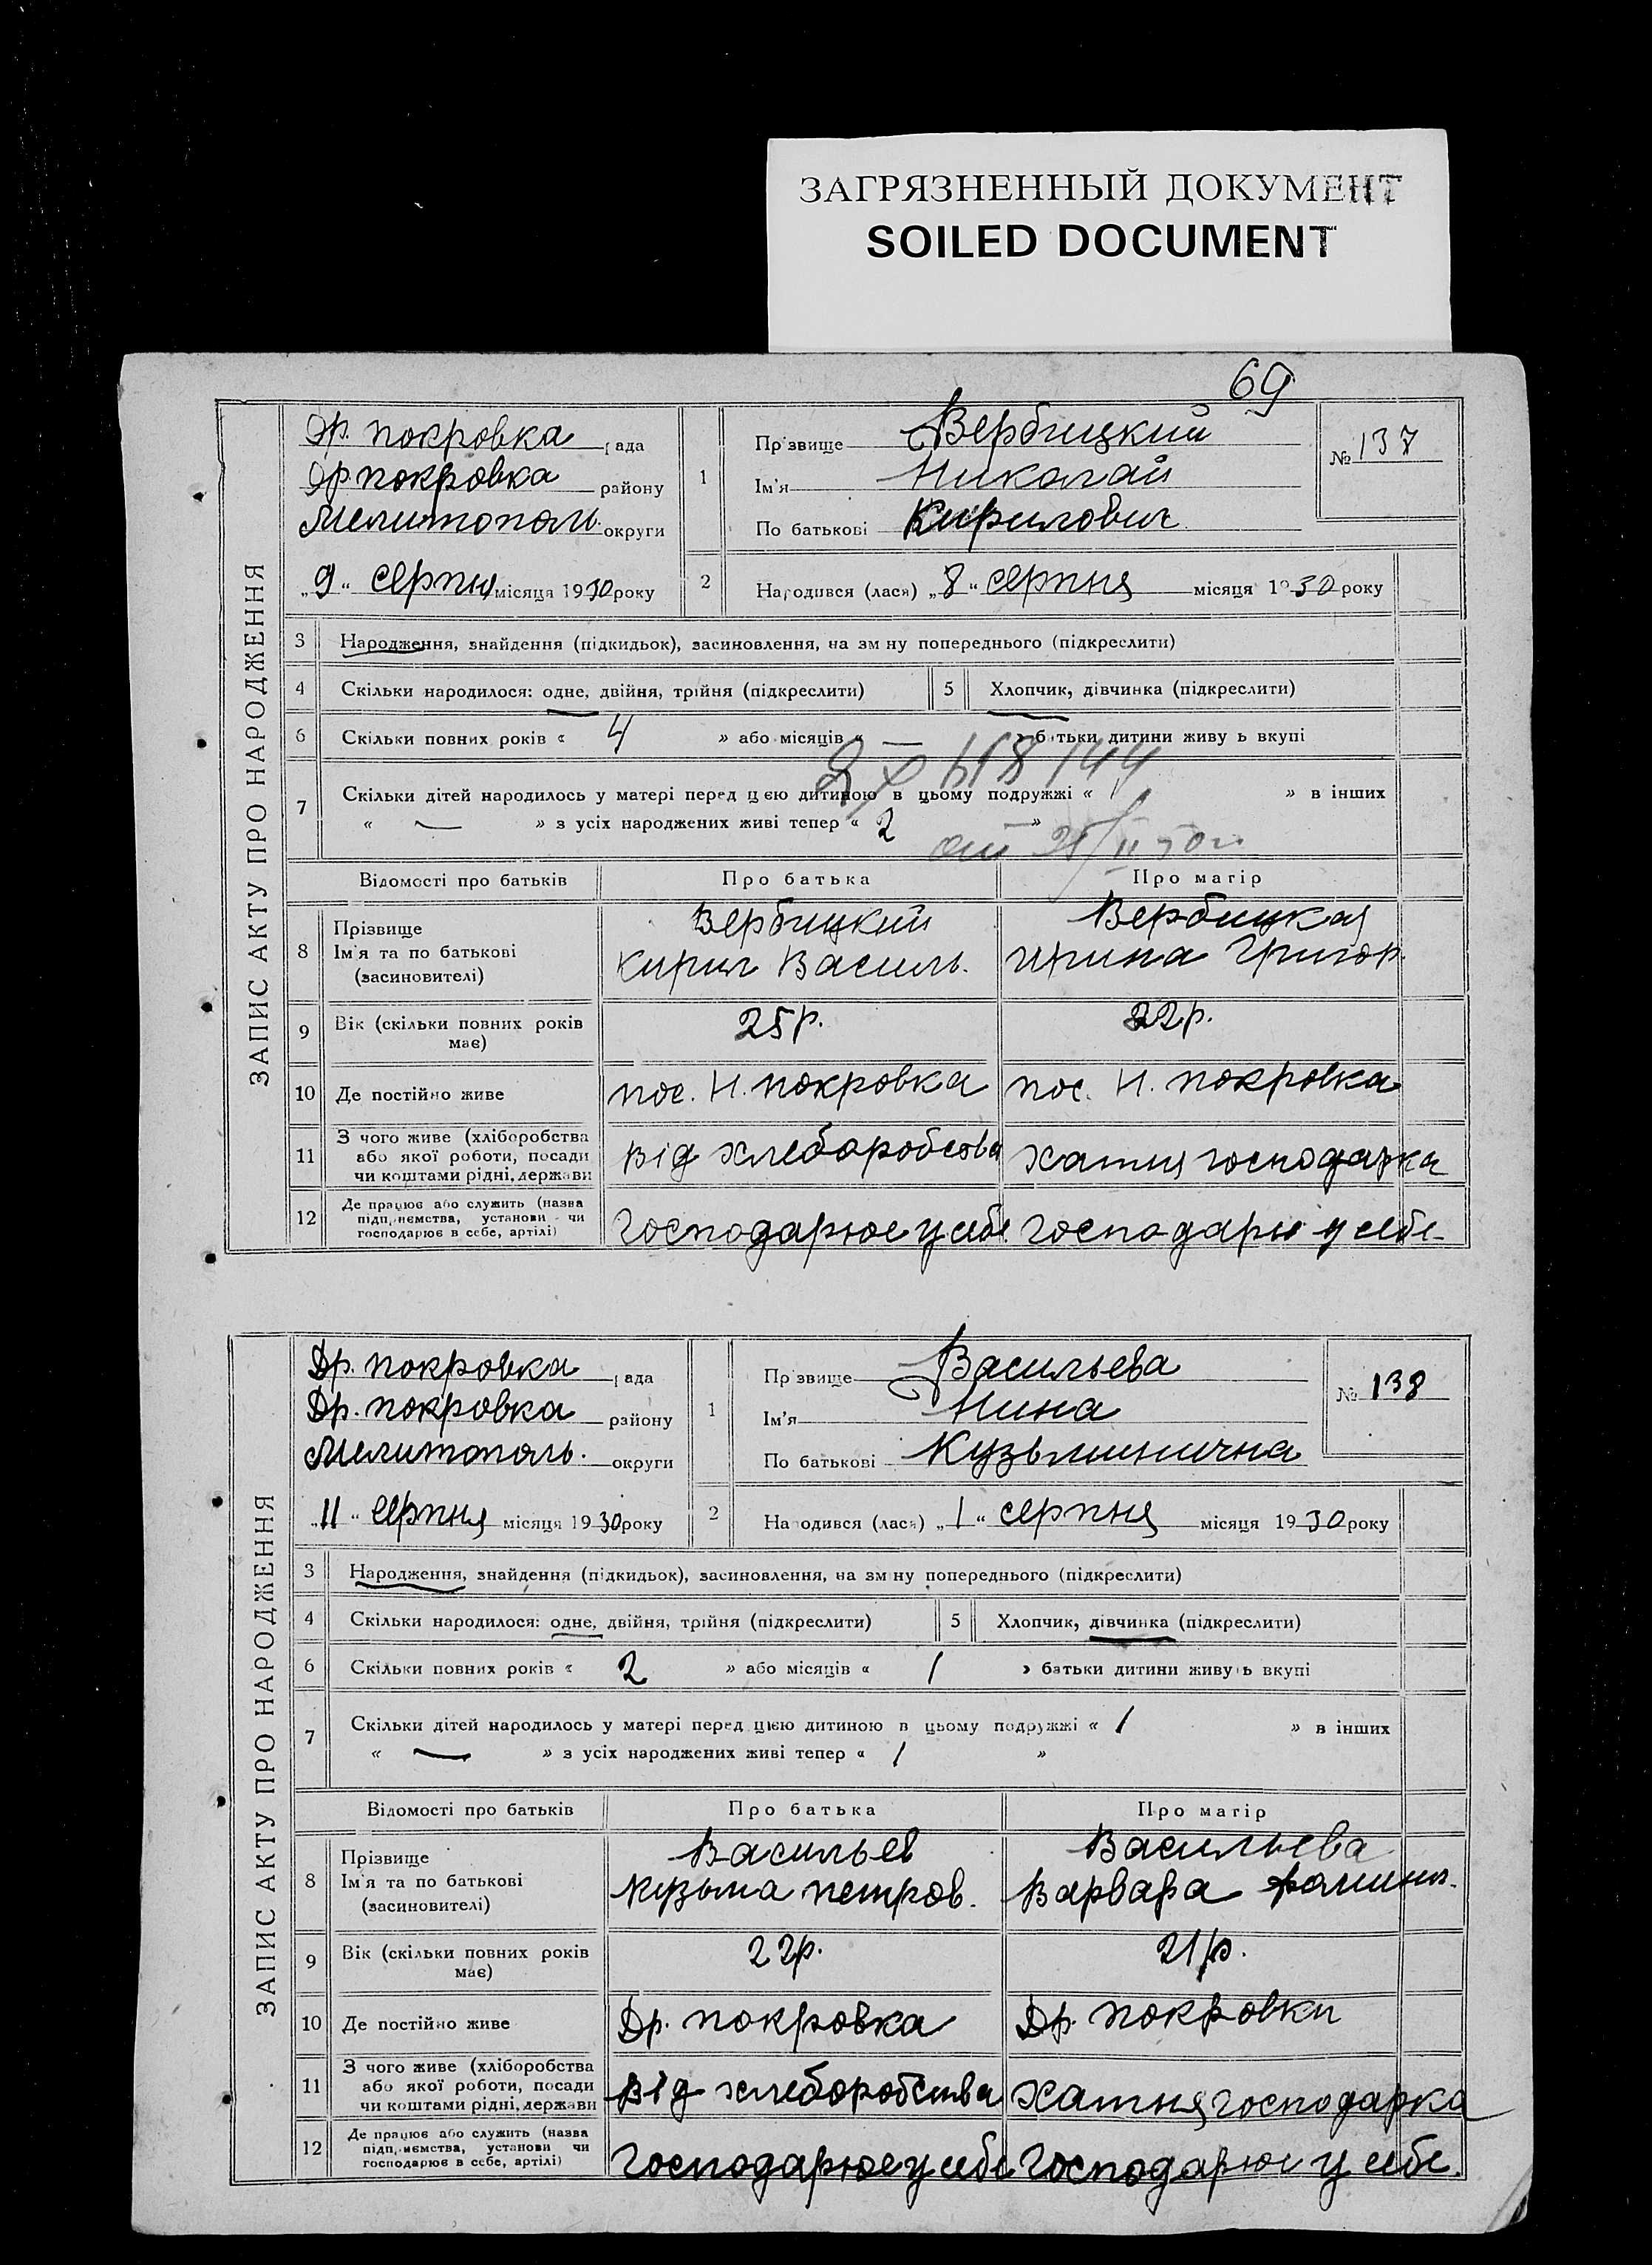 ЗАГРЯЗНЕННЫЙ ДОКУМЕНТ
SOILED DOCUMENT
69
ЗАПИС АКТУ ПРО НАРОДЖЕННЯ
Др. покровка рада
Др. покровка району
Мелитополь. округи
„9“ серпня місяця 1930 року
1 Прізвище Вербицкий
Ім'я Николай
По батькові Кирилович
№ 137
2 Народився (лася) „8“ серпня місяця 1930 року
3 Народження, знайдення (підкидьок), засиновлення, на зміну попереднього (підкреслити)
4 Скільки народилося: одне, двійня, трійня (підкреслити) 5 Хлопчик, дівчинка (підкреслити)
6 Скільки повних років « 4 » або місяців « — » батьки дитини живуть вкупі
7 Скільки дітей народилось у матері перед цією дитиною в цьому подружжі « » в інших
« — » з усіх народжених живі тепер « 2 »
Відомості про батьків Про батька Про матір
8 Прізвище Ім'я та по батькові (засиновителі)
Вербицкий Вербицкая
Кирил Василь. Ирина Григор.
9 Вік (скільки повних років має) 25 р. 22 р.
10 Де постійно живе пос. Н. покровка пос. Н. покровка
11 З чого живе (хліборобства або якої роботи, посади чи коштами рідні, держави
Від хлеборобства хатня господарка
12 Де працює або служить (назва підприємства, установи чи господарює в себе, артілі)
Господарюе у себе. господарю у себе
ЗАПИС АКТУ ПРО НАРОДЖЕННЯ
Др. покровка рада
Др. покровка району
Мелитополь. округи
„11“ серпня місяця 1930 року
1 Прізвище Васильева
Ім'я Нина
По батькові Кузьминична
№ 138
2 Народився (лася) „1“ серпня місяця 1930 року
3 Народження, знайдення (підкидьок), засиновлення, на зміну попереднього (підкреслити)
4 Скільки народилося: одне, двійня, трійня (підкреслити) 5 Хлопчик, дівчинка (підкреслити)
6 Скільки повних років « 2 » або місяців « 1 » батьки дитини живуть вкупі
7 Скільки дітей народилось у матері перед цією дитиною в цьому подружжі « 1 » в інших
« — » з усіх народжених живі тепер « 1 »
Відомості про батьків Про батька Про матір
8 Прізвище Ім'я та по батькові (засиновителі)
Васильев Васильева
Кузьма петров. Варвара
9 Вік (скільки повних років має) 22 р. 21 р.
10 Де постійно живе Др. покровка Др. покровки
11 З чого живе (хліборобства або якої роботи, посади чи коштами рідні, держави
Від хлеборобства хатня господарка
12 Де працює або служить (назва підприємства, установи чи господарює в себе, артілі)
Господарюе у себе Господарюе у себе.